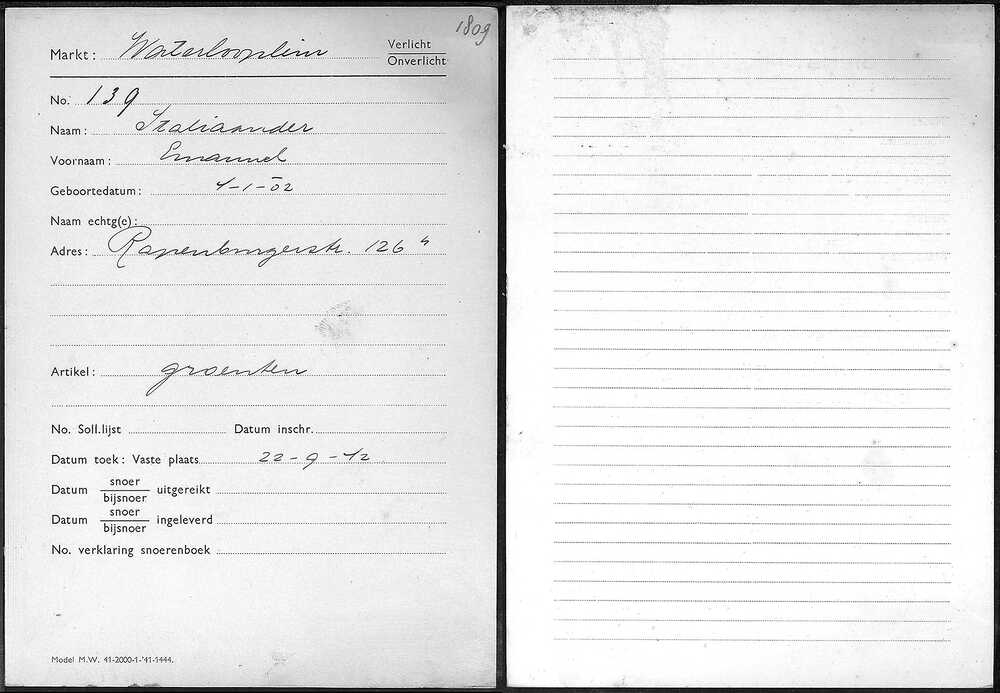 1809
Markt: Waterlooplein Verlicht
Onverlicht
No. 139
Naam: Italiaander
Voornaam: Emanuel
Geboortedatum: 4-1-02
Naam echtg(e):
Adres: Rapenburgerstr. 126
Artikel: groenten
No. Soll.lijst Datum inschr.
Datum toek: Vaste plaats 22-9-42
Datum snoer uitgereikt
bijsnoer
Datum snoer ingeleverd
bijsnoer
No. verklaring snoerenboek
Model M.W. 41-2000-1-'41-1444.